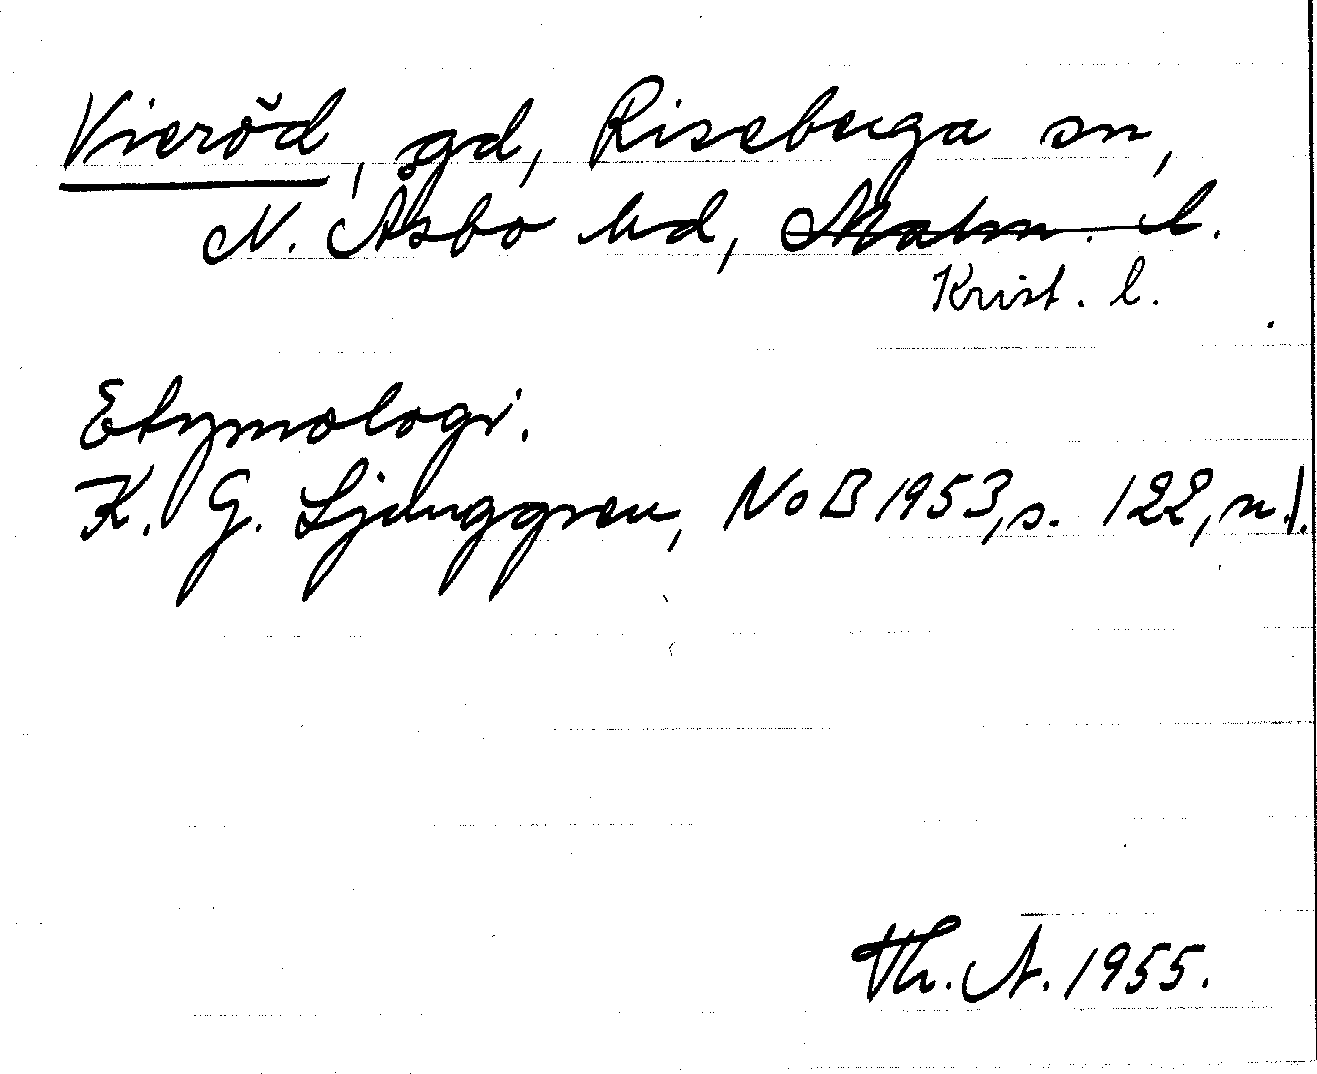 Vieröd, gd, Riseberga sn,
N. Åsbo hd, Malm. l.
Krist. l.
Etymologi.
K. G. Ljunggren, NoB 1953, s. 122, n. 1.
Th. A. 1955.